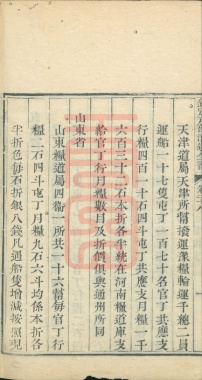 天津道屬天津所幫撥運豫糧輪運千總二員
運船一十七隻屯丁一百七十名官丁共應支
行糧四百一十石四斗屯丁共應支月糧一千
六百三十二石本折各半統在河南糧道庫支
給官丁行月糧數目及折價俱與通州所同
山東省
山東糧道屬四衞一所共一十六幫每官丁行
糧二石四斗屯丁月糧九石六斗均係本折各
半折色每石折銀八錢凡遇船隻增減按額現